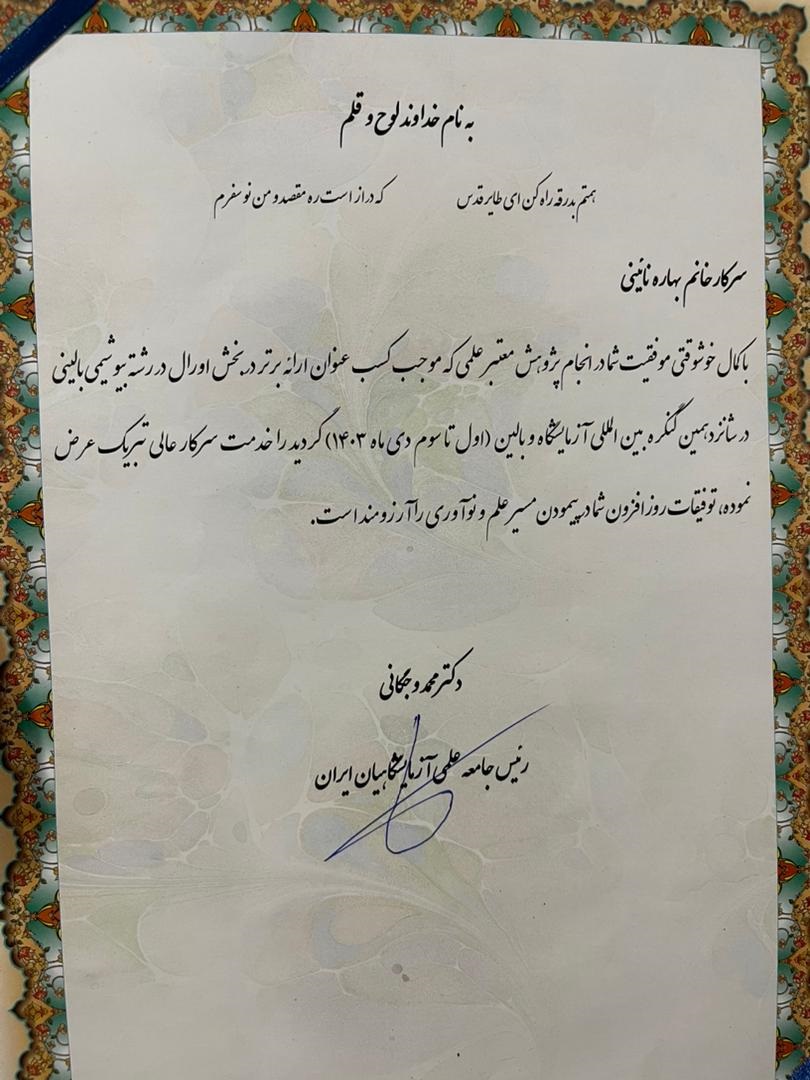 به نام خداوند لوح و قلم
همتم بدرقه راه کن ای طایر قدس که دراز است ره مقصد و من نوسفرم
سرکار خانم بهاره نائینی
با کمال خوشوقتی موفقیت شما در انجام پژوهش معتبر علمی که موجب کسب عنوان ارائه برتر در بخش اورال در رشته بیوشیمی بالینی
در شانزدهمین کنگره بین المللی آزمایشگاه و بالین (اول تا سوم دی ماه ۱۴۰۳) گردید را خدمت سرکار عالی تبریک عرض
نموده، توفیقات روز افزون شما در پیمودن مسیر علم و نوآوری را آرزومند است.
دکتر محمد وجگانی
رئیس جامعه علمی آزمایشگاهیان ایران